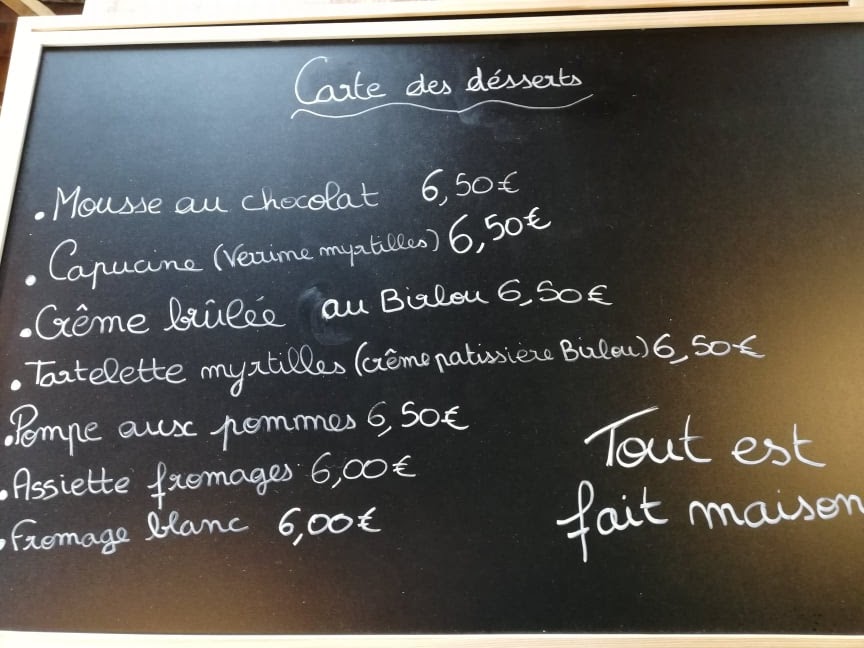 Carte des désserts
. Mousse au chocolat 6,50€
. Capucine (Verrine myrtilles) 6,50€
. Crême brûlée au Birlou 6,50€
. Tartelette myrtilles (crême patissiere Birlou) 6,50€
. Pompe aux pommes 6,50€
. Assiette fromages 6,00€
. Fromage blanc 6,00€
Tout est
fait maison